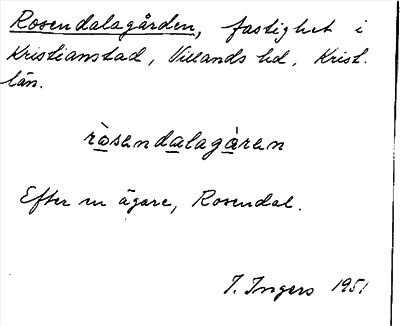 Rosendalagården, fastighet i
Kristianstad, Villands hd, Krist.
län.
ròsendalagåren
Efter en ägare, Rosendal.
I. Ingers 1951